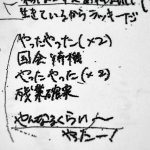 生きているからラッキーだ
やったやった(×2)
国会待機
やったやった(×2)
残業確実
やんなるくらい〜
やったー!